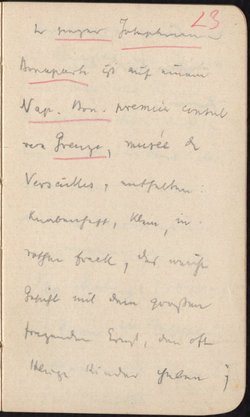 23
Der junge Josephinische
Bonaparte ist auf einem
Nap. Bon. premier consul
von Greuze, musée de
Versailles, enthalten:
Knabenhaft, klein, im
rothen frack, das weiche
Gesicht mit dem großen
fragenden Ernst, den oft
kluge Kinder haben;